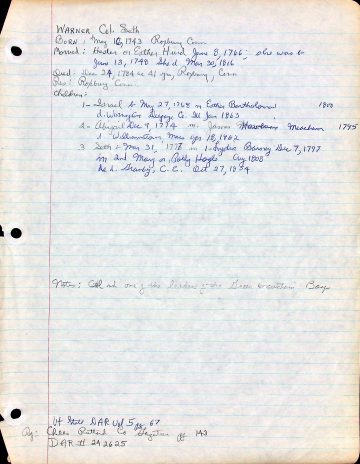 WARNER Col. Seth
BORN: May 16, 1743 Roxbury Conn
Married: Hester or Esther Hurd June 8, 1766 she was b
June 13, 1748 She d Mar 30, 1816
Died: Dec 26, 1784 41 yrs, Roxbury, Conn
Res: Roxbury Conn.
Children:
1- Israel b May 27, 1768 m Esther Bartholomew 1803
d. Co Ill Jan 1863
2- Abigail Dec 9, 1774 m. James Meacham 1795
d. Williamstown, Mass 18, 1862
3 Seth b Mar 31, 1777 m 1- Lydia Barney Dec 7, 1797
m 2nd Mary or Polly Hoyle Aug 1808
he d. Granby, C. E. Oct 27, 1854
Notes: Col and one of the leaders of the Green Mountain Boys
Vt State DAR Vol 5 pg. 67
Rutland Co Gazeteer pg 142
DAR # 242625